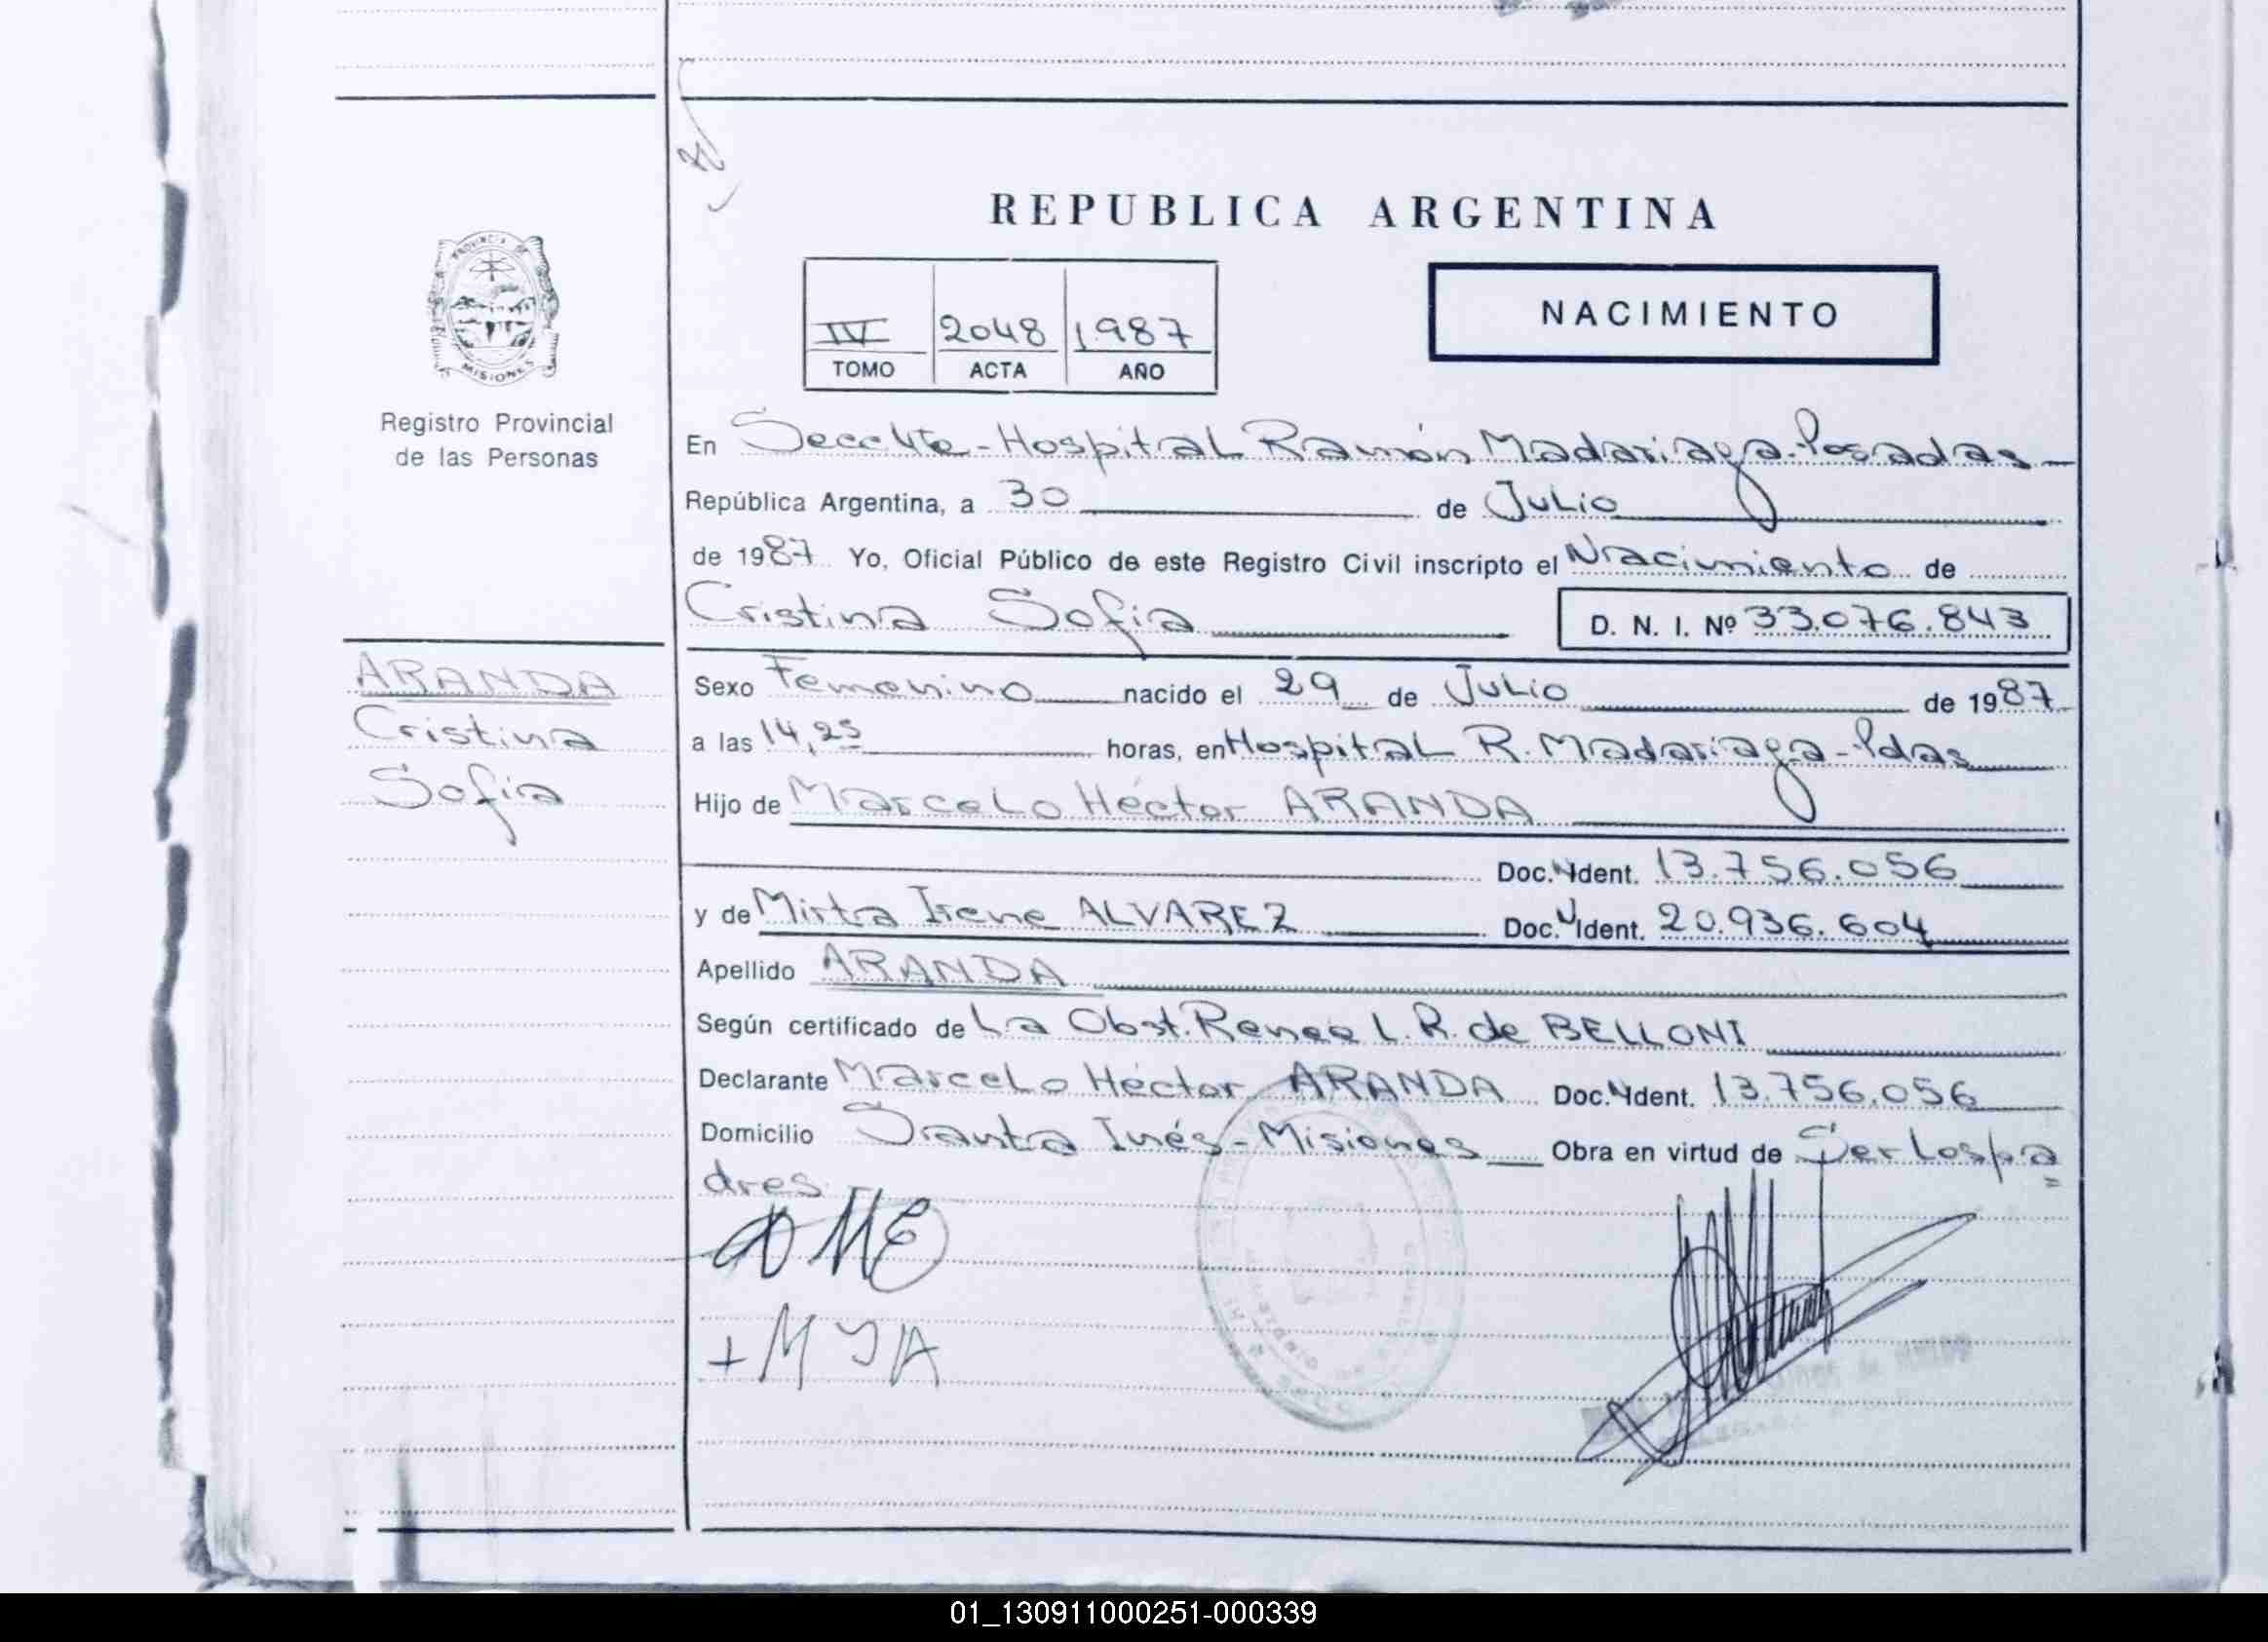 REPUBLICA ARGENTINA
PROVINCIA DE
MISIONES
Registro Provincial
de las Personas
IV 2048 1987
TOMO ACTA AÑO
NACIMIENTO
En Secc 4ta - Hospital Ramón Madariaga - Posadas -
República Argentina, a 30 de Julio
de 1987 Yo, Oficial Público de este Registro Civil inscripto el Nacimiento de
Cristina Sofia D. N. I. Nº 33.076.843
ARANDA
Cristina
Sofia
Sexo Femenino nacido el 29 de Julio de 1987
a las 14,25 horas, en Hospital R. Madariaga - Pdas
Hijo de Marcelo Héctor ARANDA
Doc. N Ident. 13.756.056
y de Mirta Irene ALVAREZ Doc. N Ident. 20.936.604
Apellido ARANDA
Según certificado de La Obst. Renee L. R. de BELLONI
Declarante Marcelo Héctor ARANDA Doc. N Ident. 13.756.056
Domicilio Santa Inés - Misiones Obra en virtud de Ser los pa
dres
+ M I A
01_130911000251-000339